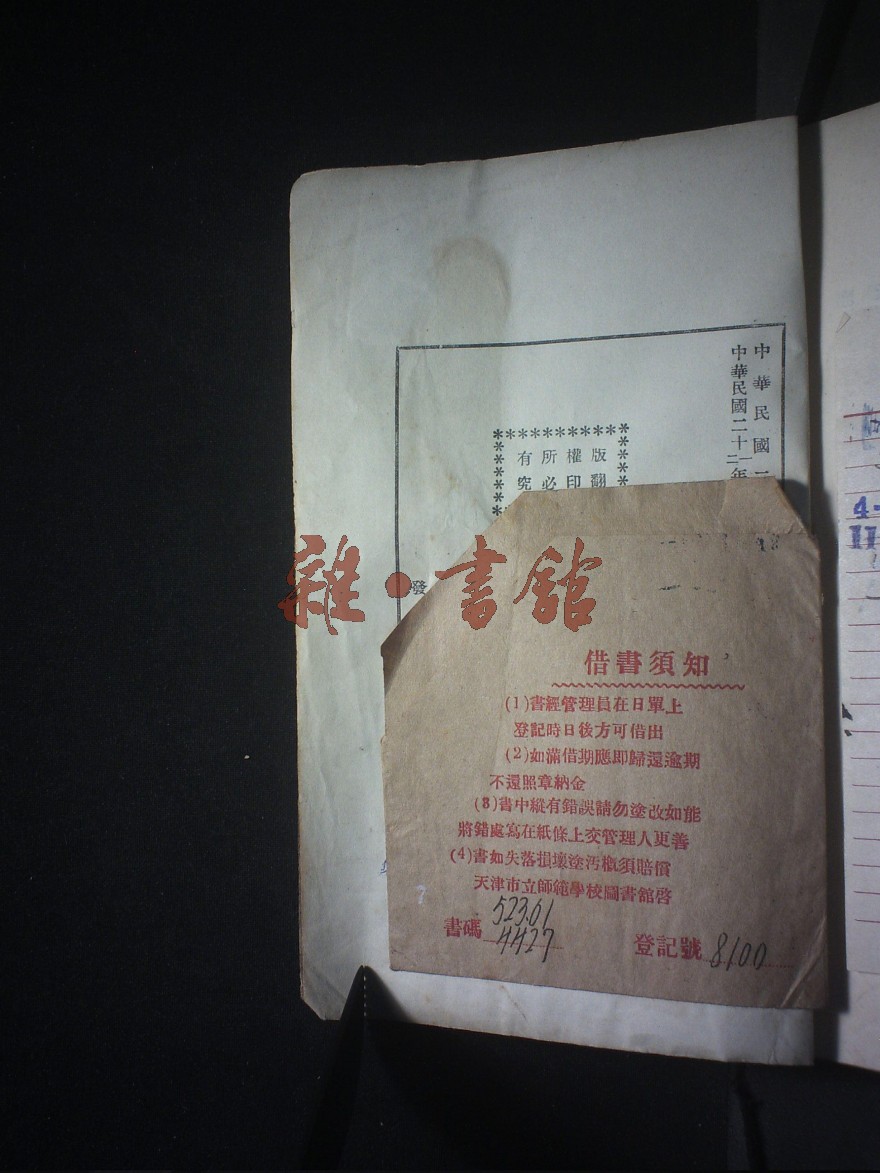 中華民國一
中華民國二十一年
二
版權所有
翻印必究
發
雜·書館
借書須知
(1)書經管理員在日單上
登記時日後方可借出
(2)如滿借期應即歸還逾期
不還照章納金
(3)書中縱有錯誤請勿塗改如能
將錯處寫在紙條上交管理人更善
(4)書如失落損壞塗汚概須賠償
天津市立師範學校圖書館啓
書碼 523.61
4427
登記號 8100
4-
11